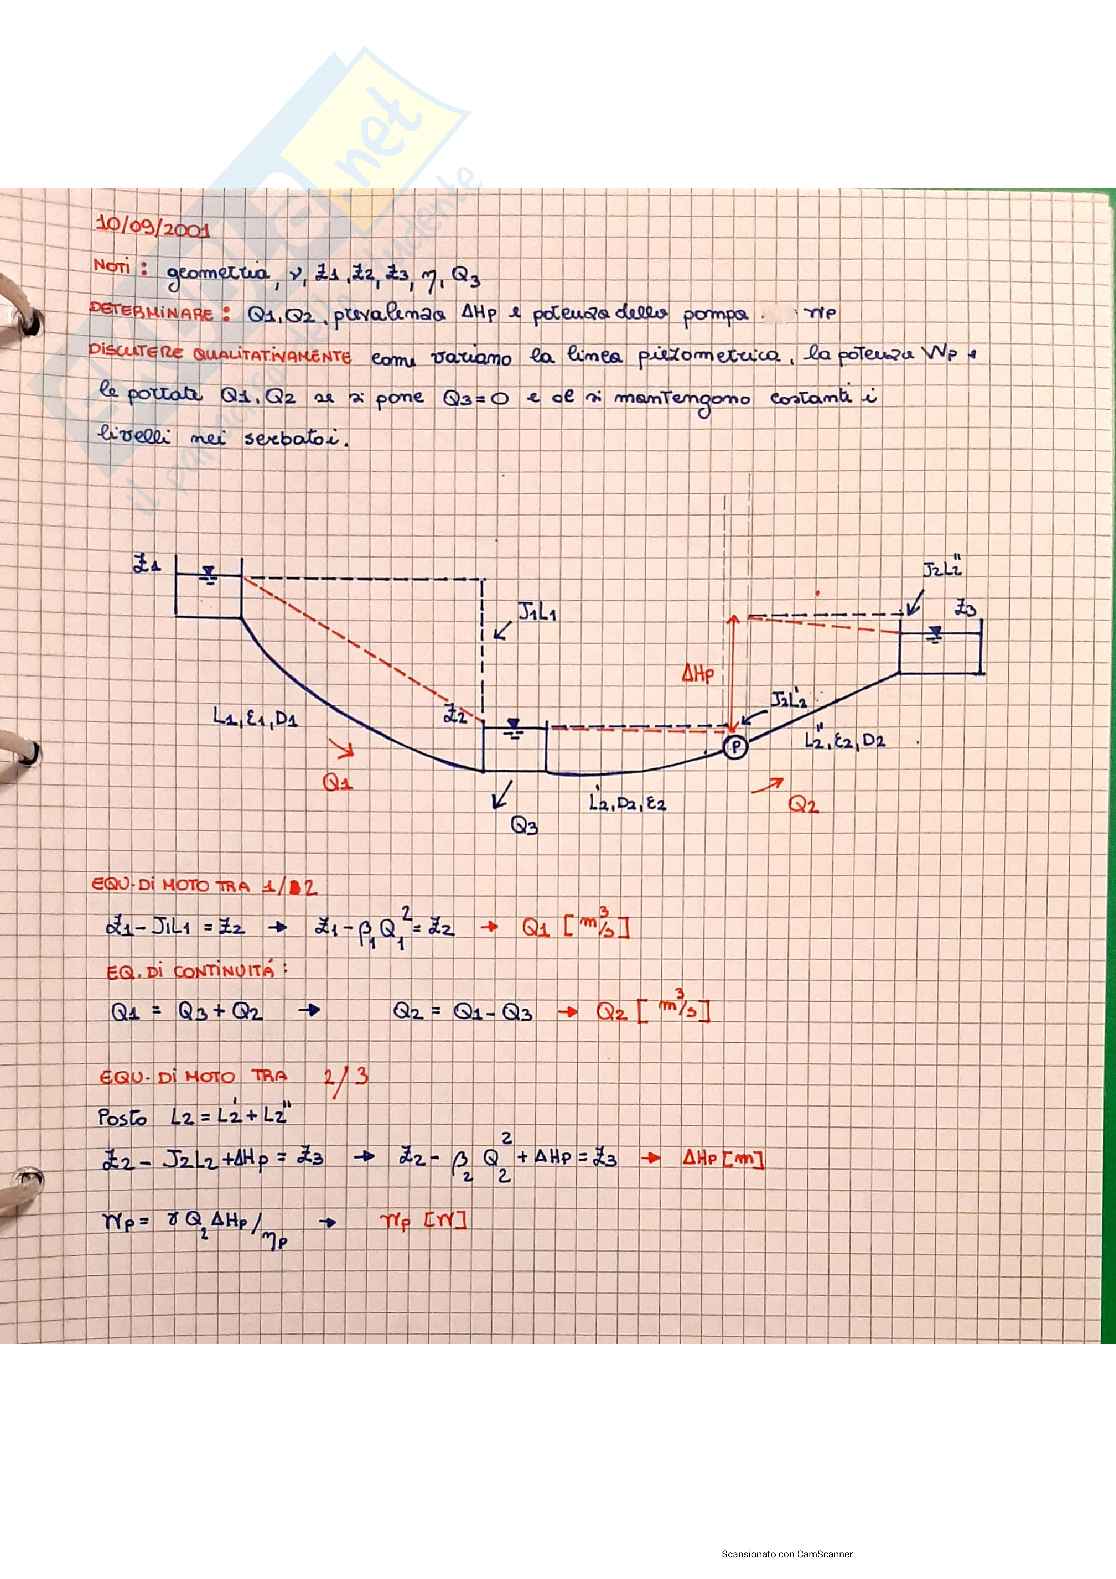 10/09/2001
NOTI: geometria, ν, Z1, Z2, Z3, η, Q3
DETERMINARE: Q1, Q2, prevalenza ΔHp e potenza della pompa Wp
DISCUTERE QUALITATIVAMENTE come variano la linea piezometrica, la potenza Wp e
le portate Q1, Q2 se si pone Q3=0 e se si mantengono costanti i
livelli nei serbatoi.
Z1
J2L2''
Z3
J1L1
ΔHp
J2L2'
Z2
L1, ε1, D1
L2'', ε2, D2
Q1
L2', D2, ε2
Q2
Q3
EQU. DI MOTO TRA 1/2
Z1 - J1L1 = Z2 → Z1 - β1Q1² = Z2 → Q1 [m³/s]
EQ. DI CONTINUITÁ:
Q1 = Q3 + Q2 → Q2 = Q1 - Q3 → Q2 [m³/s]
EQU. DI MOTO TRA 2/3
Posto L2 = L2' + L2''
Z2 - J2L2 + ΔHp = Z3 → Z2 - β2 Q2² + ΔHp = Z3 → ΔHp [m]
Wp = γ Q2 ΔHp/ηp → Wp [W]
P
.net
Scansionato con CamScanner